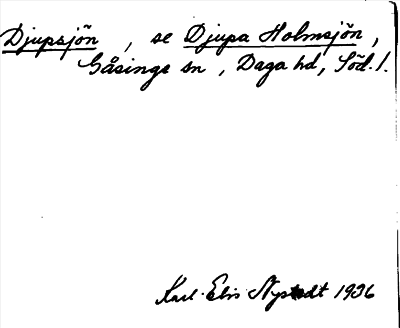 Djupsjön, se Djupa Holmsjön,
Gåsinge sn, Daga hd, Söd. l.
Karl-Elis Nystedt 1936